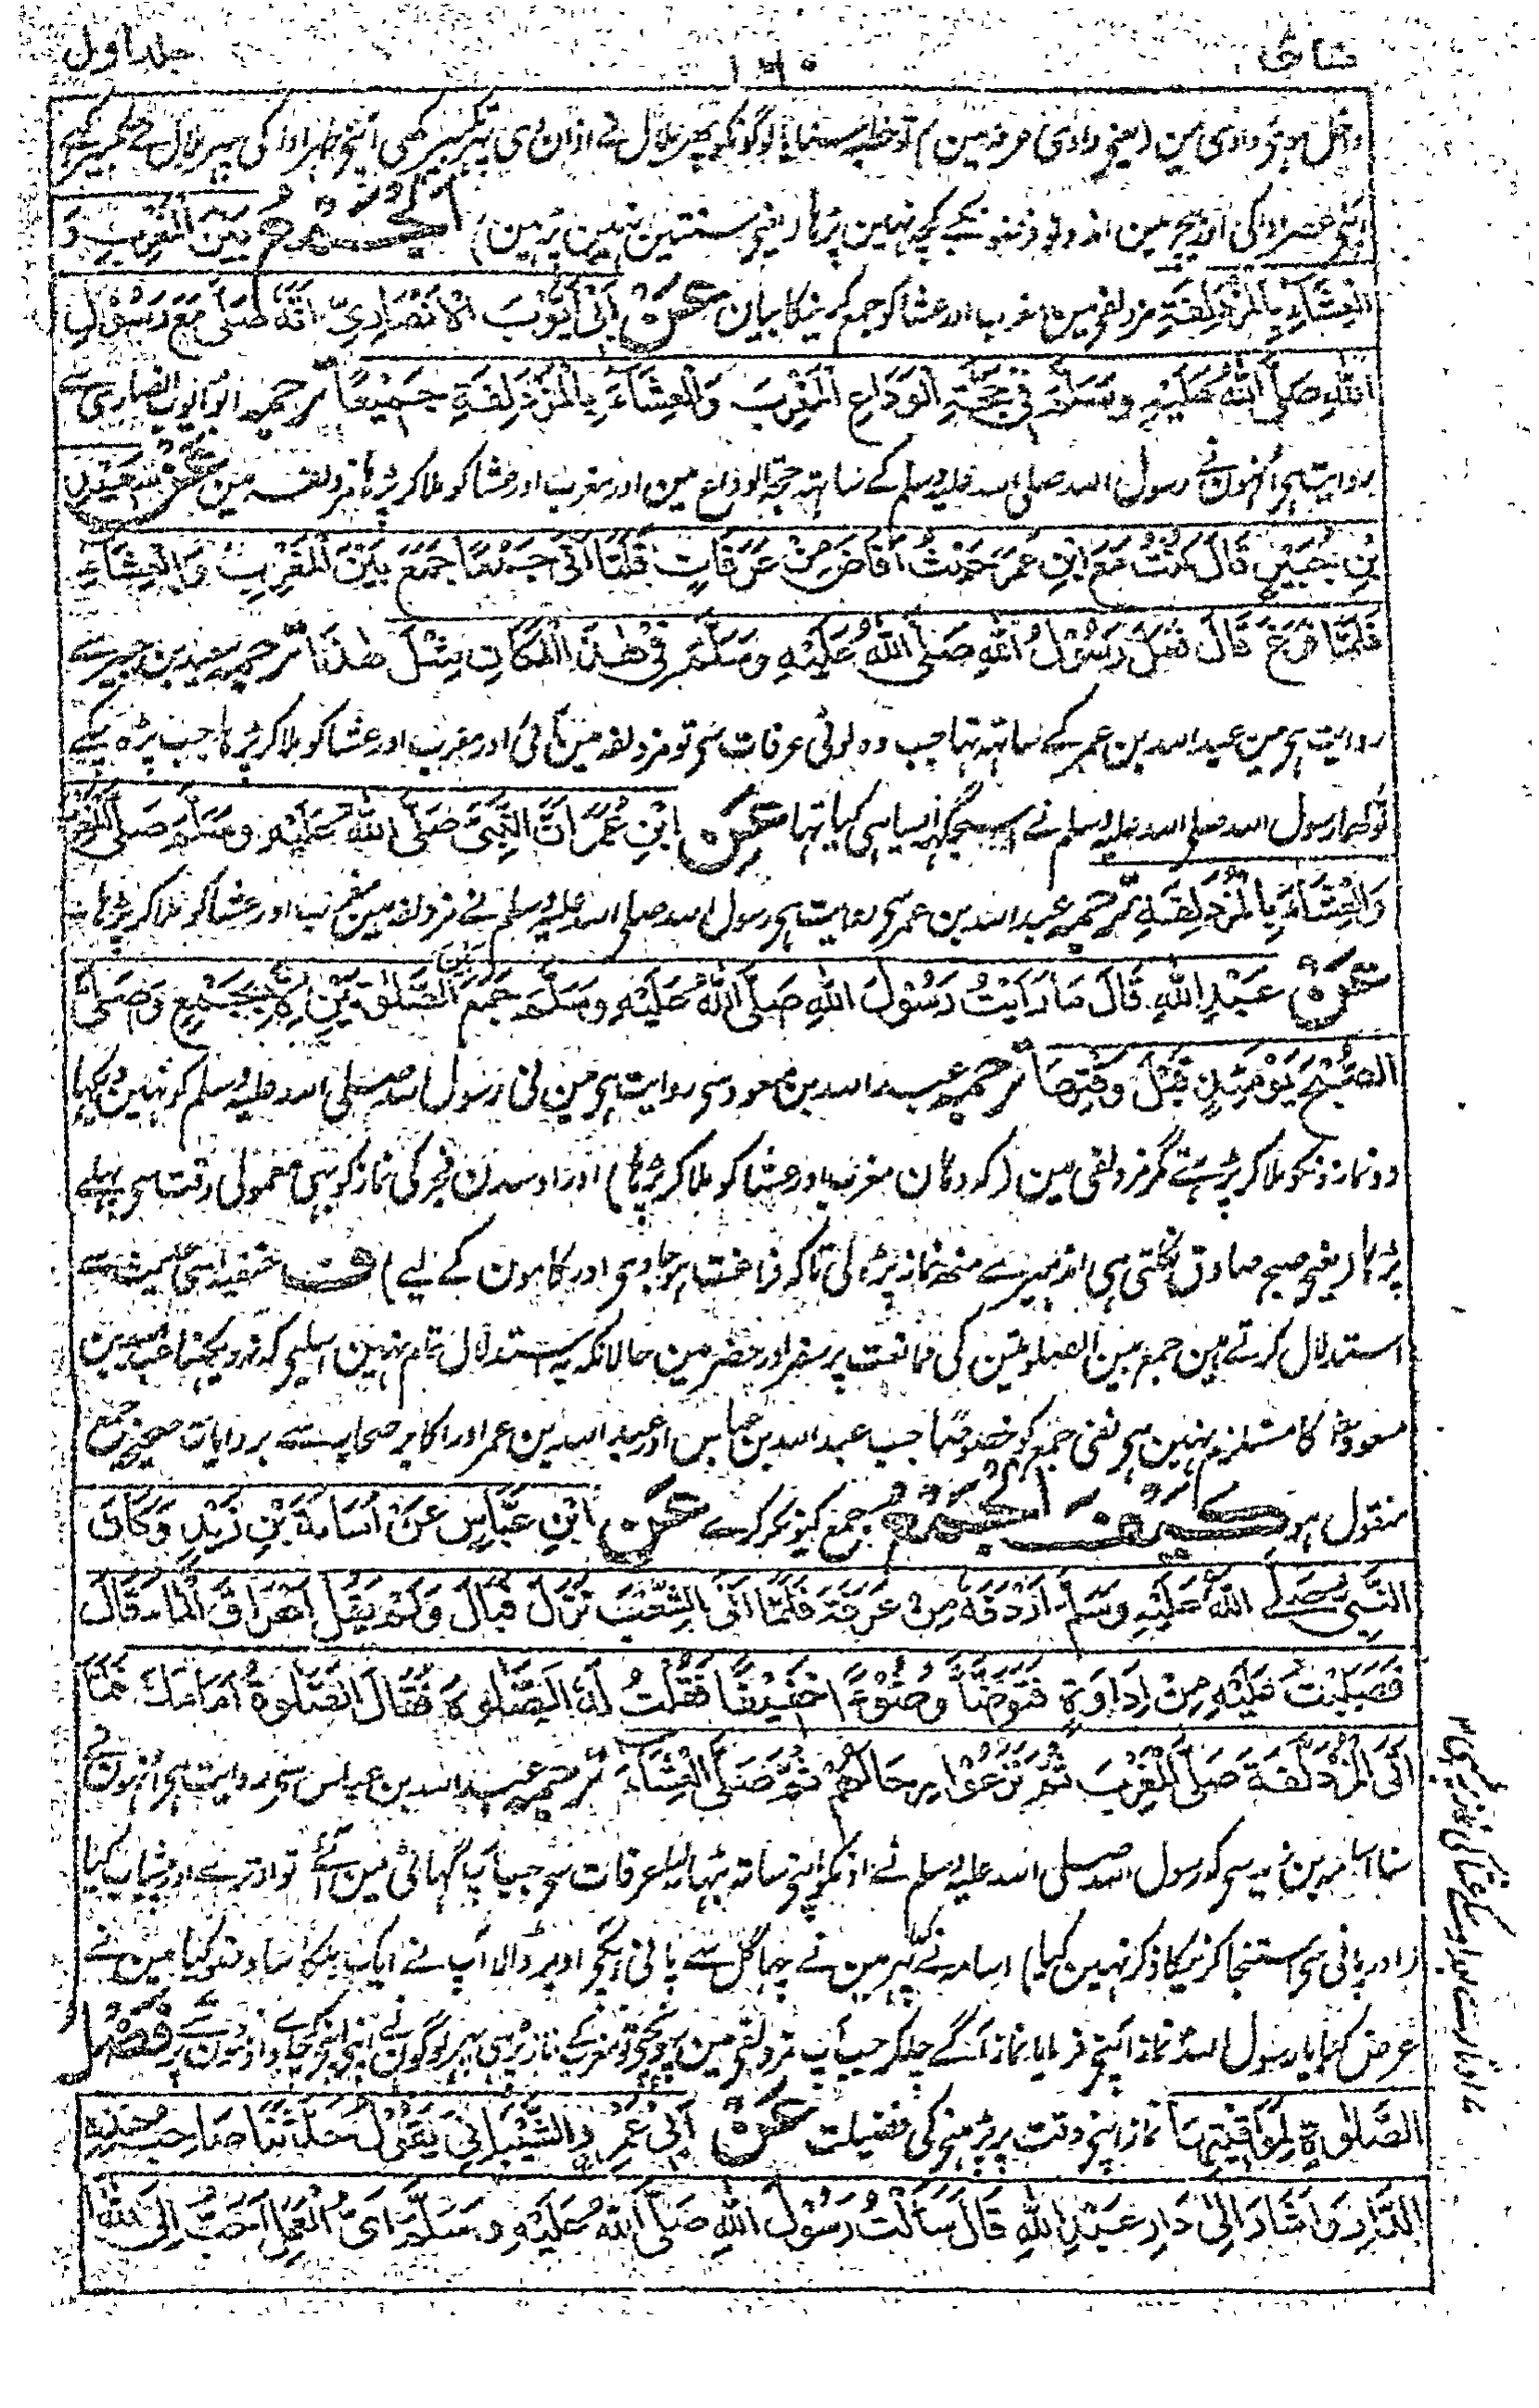 نسائی ۱۶۰ جلد اول
داخل ہوئی وادی مین (یعنی وادی عرفہ مین) تو خطبہ سنایا لوگونکو پھر بلال نے اذان دی پھر تکبیر کہی اپنی ظہر ادا کی پہر بلال نے تکبیر کہی
اپنی عصر ادا کی اور بیچ مین ان دونو نمازونکے کچھ نہین پڑہا (یعنی سنتین نہین پڑہین) اَلْجَمْعُ بَيْنَ الْمَغْرِبِ وَ
الْعِشَآءِ بِالْمُزْدَلِفَةِ مزدلفی مین مغرب اور عشا کو جمع کرنیکا بیان عَنْ اَبِيْ اَيُّوْبَ الْاَنْصَارِيِّ اَنَّهٗ صَلّٰى مَعَ رَسُوْلِ
اللّٰهِ صَلَّى اللّٰهُ عَلَيْهِ وَسَلَّمَ فِيْ حَجَّةِ الْوَدَاعِ الْمَغْرِبَ وَالْعِشَآءَ بِالْمُزْدَلِفَةِ جَمِيْعًا ترجمہ ابو ایوب انصاری سے
روایت ہی اُنہون نے رسول اللہ صلی اللہ علیہ وسلم کے ساتہہ حجۃ الوداع مین اور مغرب اور عشا کو ملا کر پڑہا مزدلفہ مین عَنْ سَعِيْدِ
بْنِ جُبَيْرٍ قَالَ كُنْتُ مَعَ ابْنِ عُمَرَ حَيْثُ اَفَاضَ مِنْ عَرَفَاتٍ فَلَمَّا اَتٰى جَمْعًا جَمَعَ بَيْنَ الْمَغْرِبِ وَالْعِشَآءِ
فَلَمَّا فَرَغَ قَالَ فَعَلَ رَسُوْلُ اللّٰهِ صَلَّى اللّٰهُ عَلَيْهِ وَسَلَّمَ فِيْ هٰذَا الْمَكَانِ مِثْلَ هٰذَا ترجمہ سعید بن جبیر سے
روایت ہی مین عبد اللہ بن عمر کے ساتہہ تہا جب وہ لوٹی عرفات سی تو مزدلفہ مین آئی اور مغرب اور عشا کو ملا کر پڑہا جب پڑہ چکے
تو کہا رسول اللہ صلی اللہ علیہ وسلم نے اسیجگہہ ایسا ہی کیا تہا عَنْ ابْنِ عُمَرَ اَنَّ النَّبِيَّ صَلَّى اللّٰهُ عَلَيْهِ وَسَلَّمَ صَلَّى الْمَغْرِبَ
وَالْعِشَآءَ بِالْمُزْدَلِفَةِ ترجمہ عبد اللہ بن عمر سی روایت ہی رسول اللہ صلی اللہ علیہ وسلم نے مزدلفہ مین مغرب اور عشا کو ملا کر پڑہا
عَنْ عَبْدِ اللّٰهِ قَالَ مَا رَاَيْتُ رَسُوْلَ اللّٰهِ صَلَّى اللّٰهُ عَلَيْهِ وَسَلَّمَ جَمَعَ بَيْنَ الصَّلٰوتَيْنِ اِلَّا بِجَمْعٍ وَصَلَّى
الصُّبْحَ يَوْمَئِذٍ قَبْلَ وَقْتِهَا ترجمہ عبد اللہ بن مسعود سی روایت ہی مین نی رسول اللہ صلی اللہ علیہ وسلم کو نہین دیکہا
دو نمازونکو ملا کر پڑہتے مگر مزدلفی مین (کہ وہان مغرب اور عشا کو ملا کر پڑہا) اور اوسدن فجر کی نماز کو بہی معمولی وقت سی پہلے
پڑہا (یعنی صبح صادق نکلتی ہی اندہیرے منھ نماز پڑہ لی تاکہ فراغت ہو جاوی اور کامون کے لیے) ف حنفیہ اسی حدیث سے
استدلال کرتے ہین جمع بین الصلوتین کی ممانعت پر سفر اور حضر مین حالانکہ یہ استدلال تام نہین اسلیے کہ نہ دیکھنا عبد اللہ بن
مسعود کا مستلزم نہین ہی نفی جمع کو خصوصًا جب عبد اللہ بن عباس اور عبد اللہ بن عمر اور اکابر صحابہ سے بروایات صحیحہ جمع
منقول ہو كَيْفَ الْجَمْعُ جمع کیونکر کرے عَنْ ابْنِ عَبَّاسٍ عَنْ اُسَامَةَ بْنِ زَيْدٍ وَكَانَ
النَّبِيُّ صَلَّى اللّٰهُ عَلَيْهِ وَسَلَّمَ اَرْدَفَهٗ مِنْ عَرَفَةَ فَلَمَّا اَتَى الشِّعْبَ نَزَلَ فَبَالَ وَلَمْ يَقُلْ اَهْرَاقَ الْمَآءَ قَالَ
فَصَبَبْتُ عَلَيْهِ مِنْ اِدَاوَةٍ فَتَوَضَّاَ وُضُوْءًا خَفِيْفًا فَقُلْتُ لَهُ الصَّلٰوةَ فَقَالَ الصَّلٰوةُ اَمَامَكَ فَلَمَّا
اَتَى الْمُزْدَلِفَةَ صَلَّى الْمَغْرِبَ ثُمَّ نَزَعُوْا رِحَالَهُمْ ثُمَّ صَلَّى الْعِشَآءَ ترجمہ عبد اللہ بن عباس سی روایت ہی اُنہون نے
سنا اسامہ بن زید سی کہ رسول اللہ صلی اللہ علیہ وسلم نے انکو اپنی ساتہہ بٹہا لیا عرفات سی جب آپ گہاٹی مین آئے تو اوترے اور پیشاب کیا
(اور پانی سی استنجا کرنیکا ذکر نہین کیا) اسامہ نے کہا پہر مین نے چہاگل سے پانی آپکی اوپر ڈالا آپ نے ایک ہلکا سا وضو کیا مین نے
عرض کیا یا رسول اللہ نماز آپنی فرمایا نماز آگے چلکر جب آپ مزدلفی مین پہونچی تو مغرب کے نماز پڑہی پہر لوگون نے اپنی اپنی کجاوے اونٹون پر سے اُتارے فَضْلُ
الصَّلٰوةِ لِمَوَاقِيْتِهَا نماز اپنی وقت پر پڑہنی کی فضیلت عَنْ اَبِيْ عَمْرٍو الشَّيْبَانِيْ يَقُوْلُ حَدَّثَنَا صَاحِبُ هٰذِهِ
الدَّارِ وَاَشَارَ اِلٰى دَارِ عَبْدِ اللّٰهِ قَالَ سَاَلْتُ رَسُوْلَ اللّٰهِ صَلَّى اللّٰهُ عَلَيْهِ وَسَلَّمَ اَيُّ الْعَمَلِ اَحَبُّ اِلَى اللّٰهِ